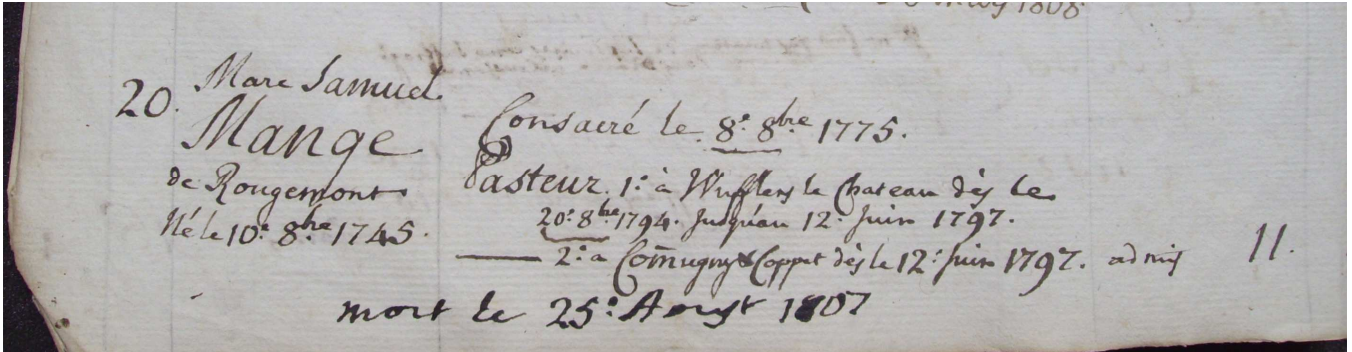 May 1808
20. Marc Samuel
Mange
de Rougemont
Né le 10.e 8.bre 1745.
Consacré le 8.e 8bre 1775.
Pasteur. 1.° à Wufflens le Chateau dès le
20.e 8.bre 1794. jusqu'au 12.e Juin 1797.
2.° à Com̃ugny & Coppet dès le 12.e Juin 1797. admis 11.
mort le 25.e Aoust 1807